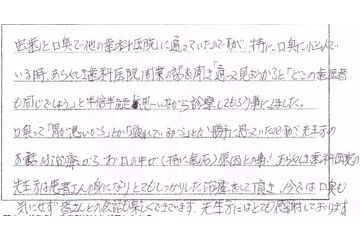 虫歯と口臭で他の歯科医院に通っていたのですが、特に口臭に悩んで
いる時、あらやしき歯科医院開業の話を聞き「通って見ようか」と「どこの歯医者
も同じでしょう」と半信半疑に思いながら診療してもらう事にしました。
口臭って「胃が悪いから」とか「疲れているから」とか勝手に思っていたのですが先生方の
お話や治療から、お口の中が(特に歯石)原因との事!あらやしき歯科医院の
先生方は患者さんの身になりとてもしっかりした治療をして頂き、今では口臭も
気にせず皆さんとの会話も楽しくできています。先生方にはとても感謝しております